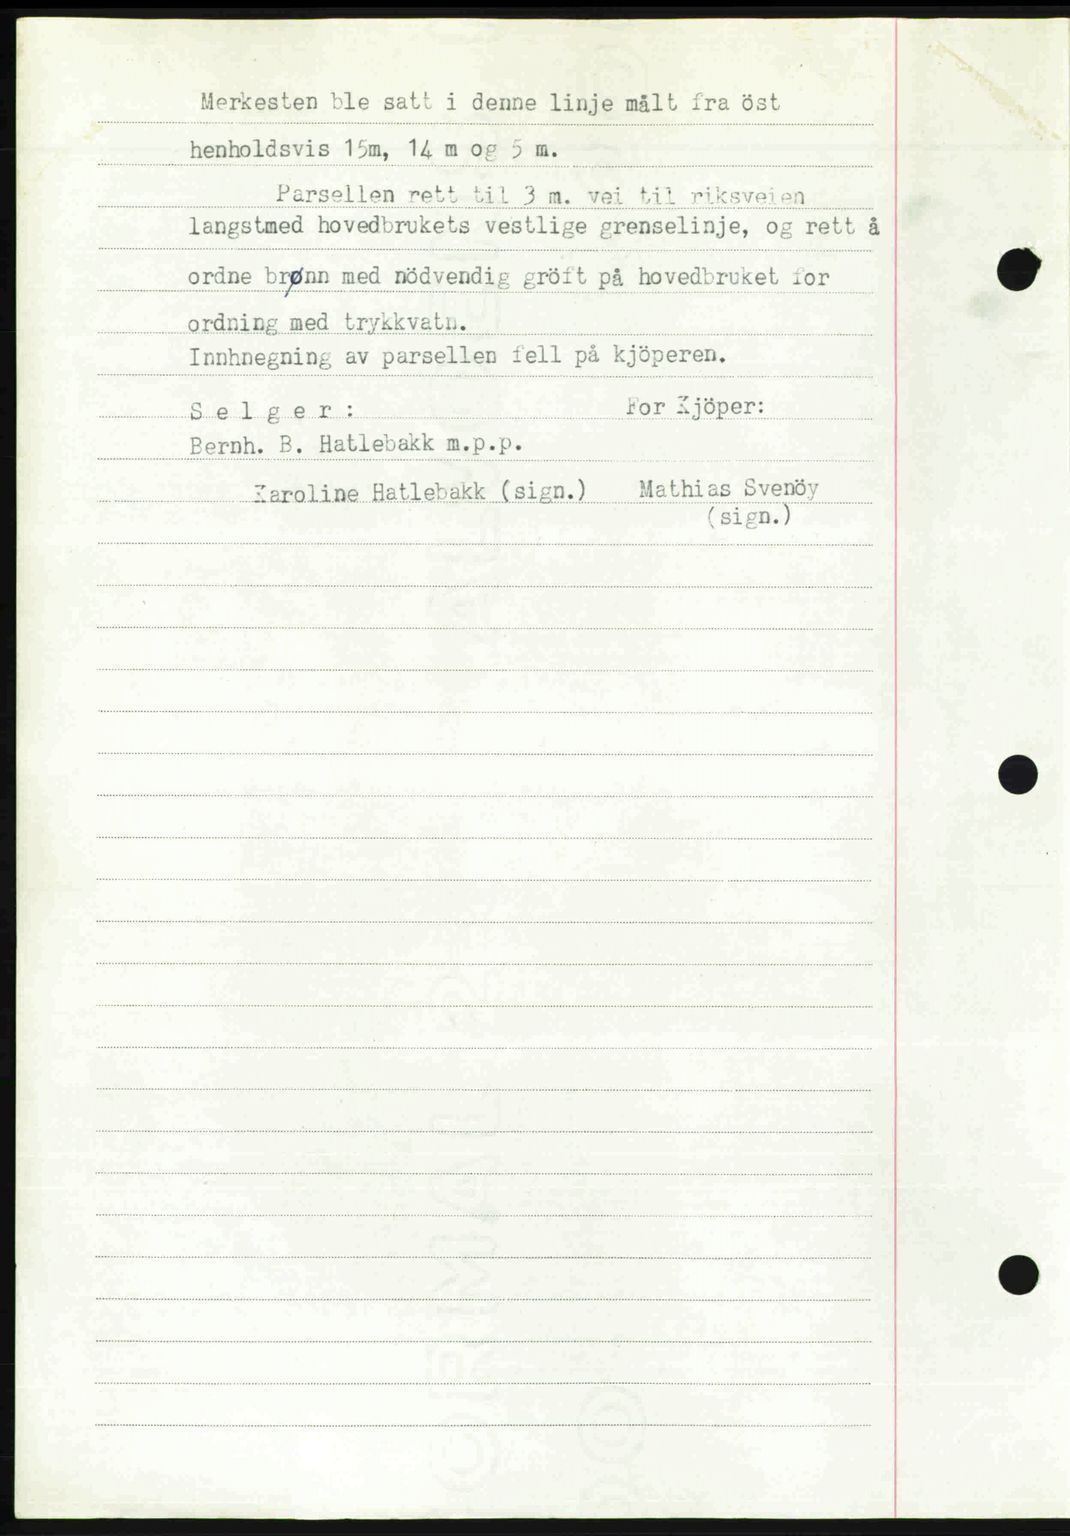 Merkesten ble satt i denne linje målt fra öst
henholdsvis 15m, 14 m og 5 m.
Parsellen rett til 3 m. vei til riksveien
langstmed hovedbrukets vestlige grenselinje, og rett å
ordne brønn med nödvendig gröft på hovedbruket for
ordning med trykkvatn.
Innhnegning av parsellen fell på kjöperen.
S e l g e r : For Kjöper:
Bernh. B. Hatlebakk m.p.p.
Karoline Hatlebakk (sign.) Mathias Svenöy
(sign.)